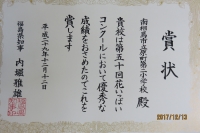 賞状
南相馬市立原町第三小学校 殿
貴校は第五十回花いっぱい
コンクールにおいて優秀な
成績をおさめたのでこれを
賞します
平成二十九年十二月十二日
福島県知事 内堀雅雄
2017/12/13